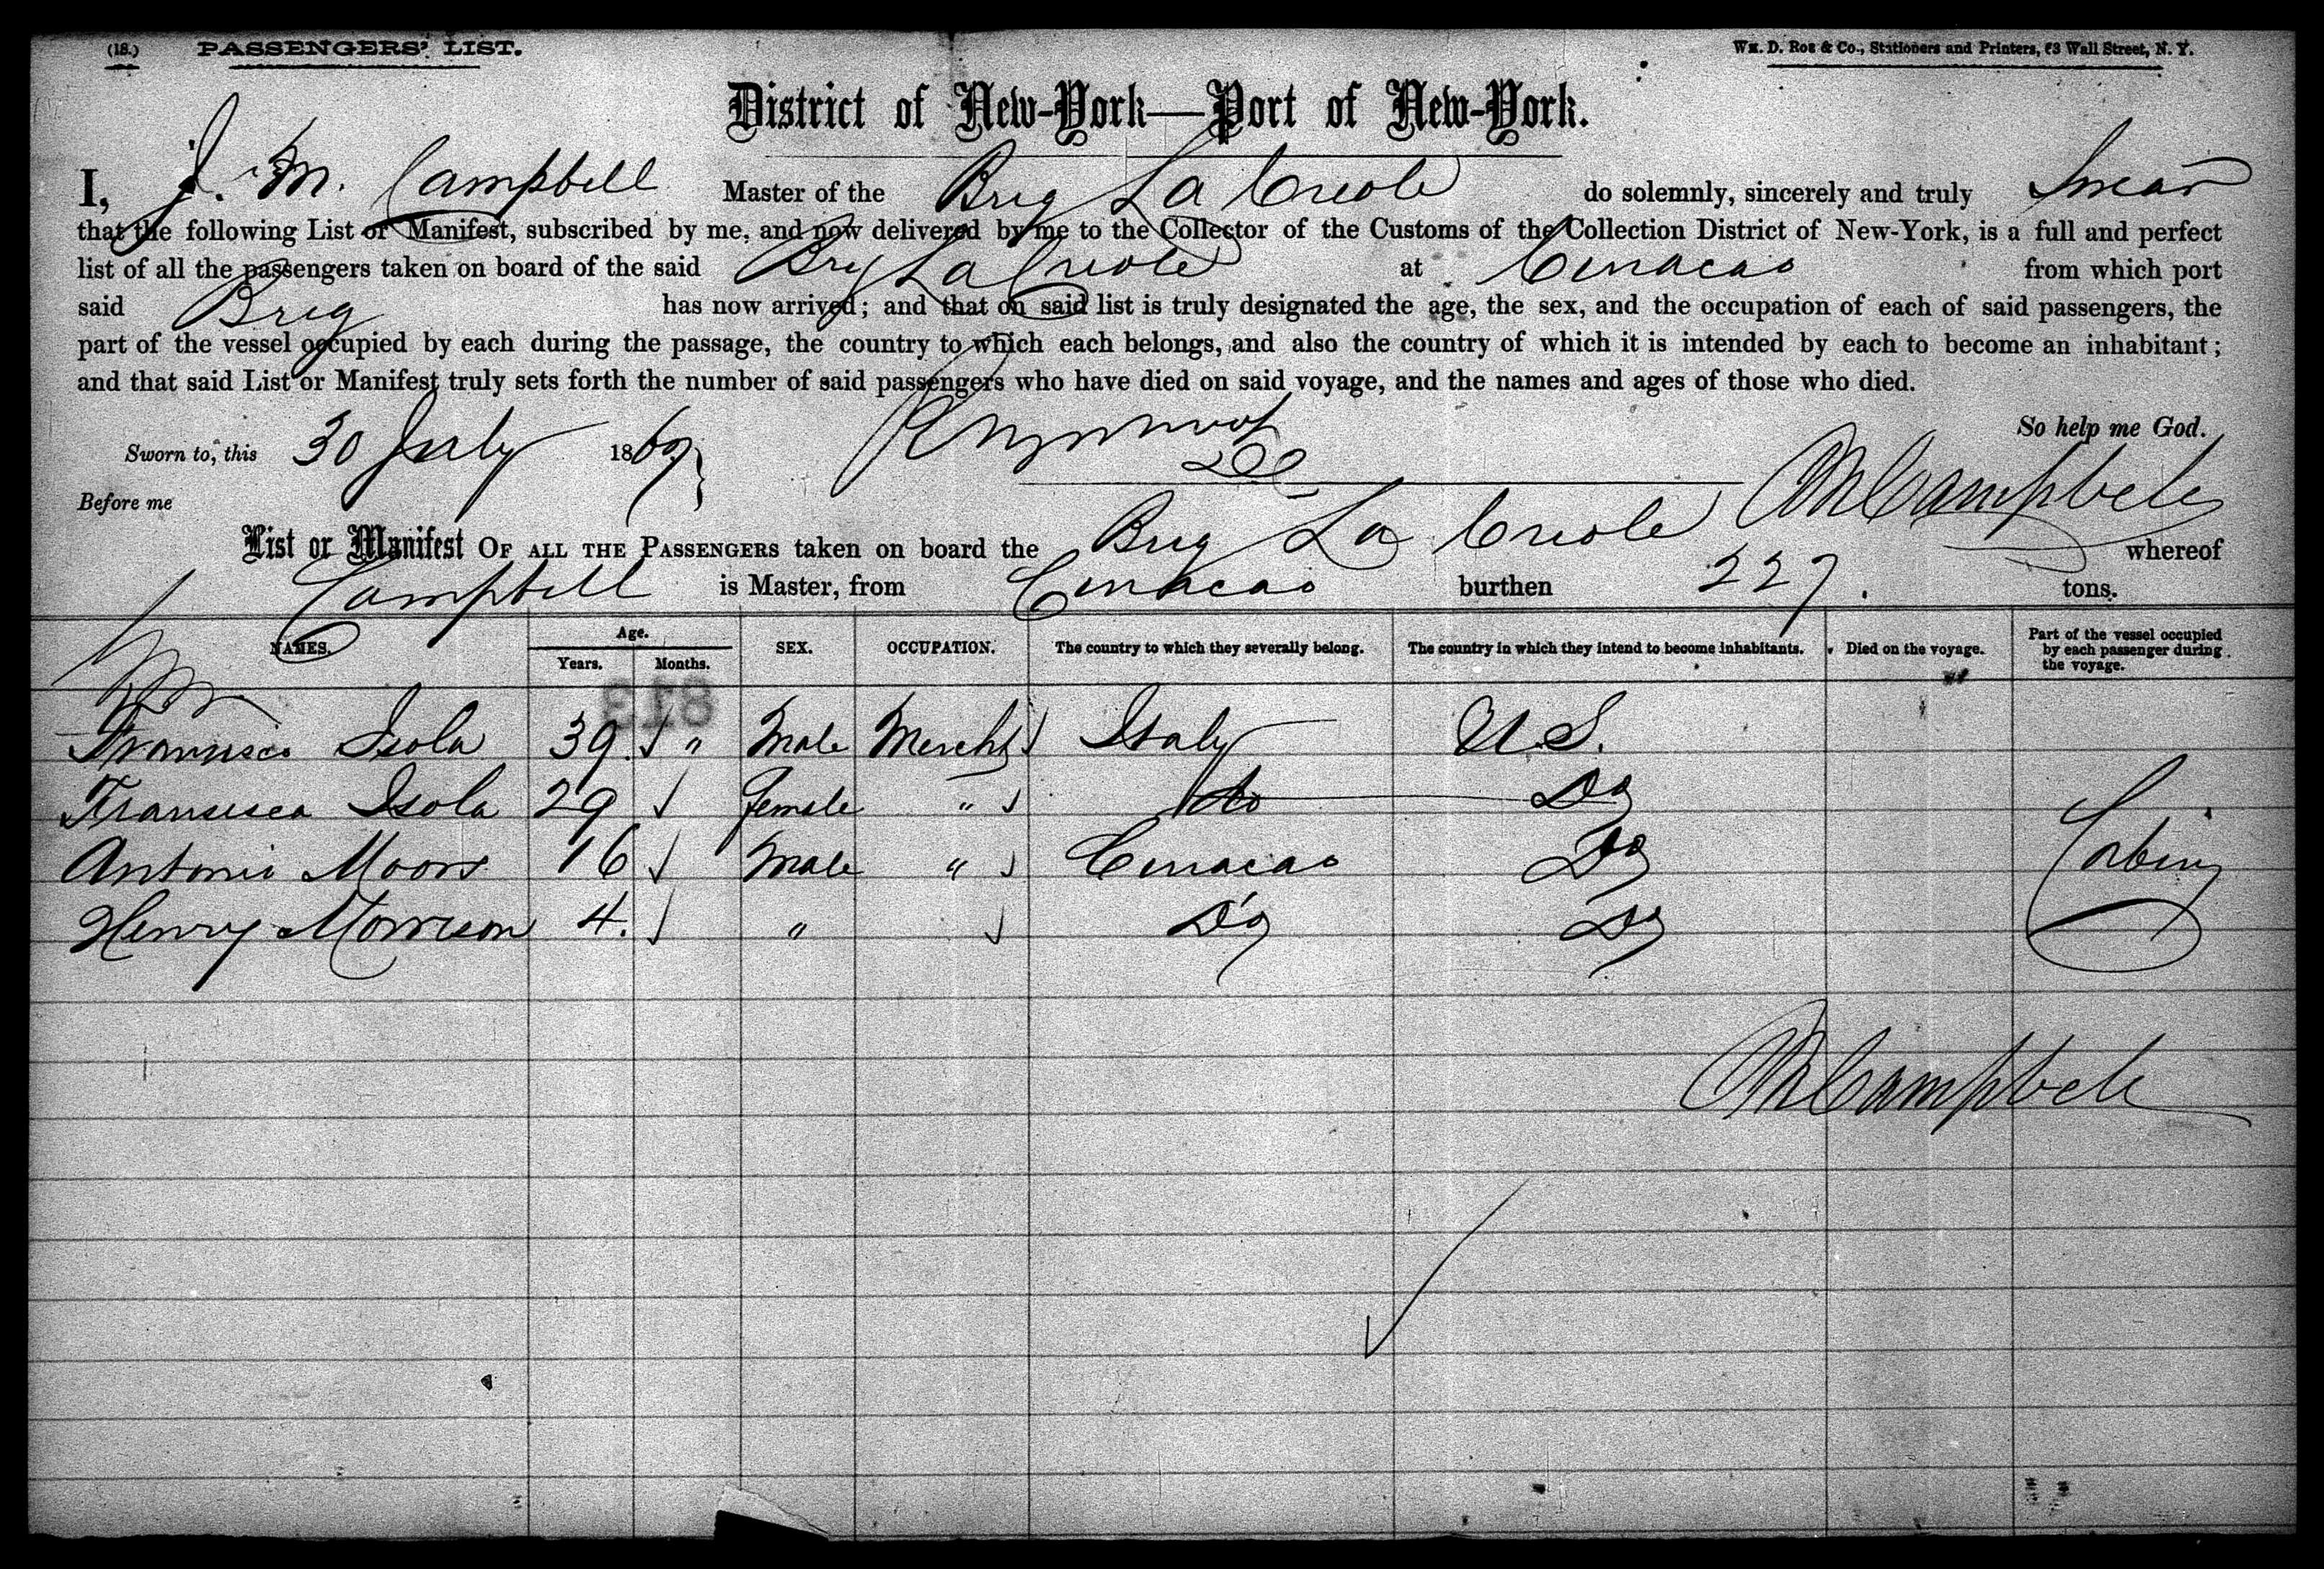 (18.) PASSENGERS' LIST. Wm. D. Roe & Co., Stationers and Printers, 63 Wall Street, N. Y.
District of New-York—Port of New-York.
I, J. M. Campbell Master of the Brig La Creole do solemnly, sincerely and truly Swear
that the following List or Manifest, subscribed by me, and now delivered by me to the Collector of the Customs of the Collection District of New-York, is a full and perfect
list of all the passengers taken on board of the said Brig La Creole at Curacao from which port
said Brig has now arrived; and that on said list is truly designated the age, the sex, and the occupation of each of said passengers, the
part of the vessel occupied by each during the passage, the country to which each belongs, and also the country of which it is intended by each to become an inhabitant;
and that said List or Manifest truly sets forth the number of said passengers who have died on said voyage, and the names and ages of those who died.
So help me God.
Sworn to, this 30 July 1869
Before me
JM Campbell
List or Manifest OF ALL THE PASSENGERS taken on board the Brig La Creole whereof
Campbell is Master, from Curacao burthen 227. tons.
NAMES. Age. Years. Months. SEX. OCCUPATION. The country to which they severally belong. The country in which they intend to become inhabitants. Died on the voyage. Part of the vessel occupied by each passenger during the voyage.
813
Fransisco Isola 39. " Male Mercht Italy U.S.
Fransisca Isola 29 female " do Do
Antonio Moors 16 Male " Curacao Do Cabin
Henry Morrison 4. " Do Do
JM Campbell